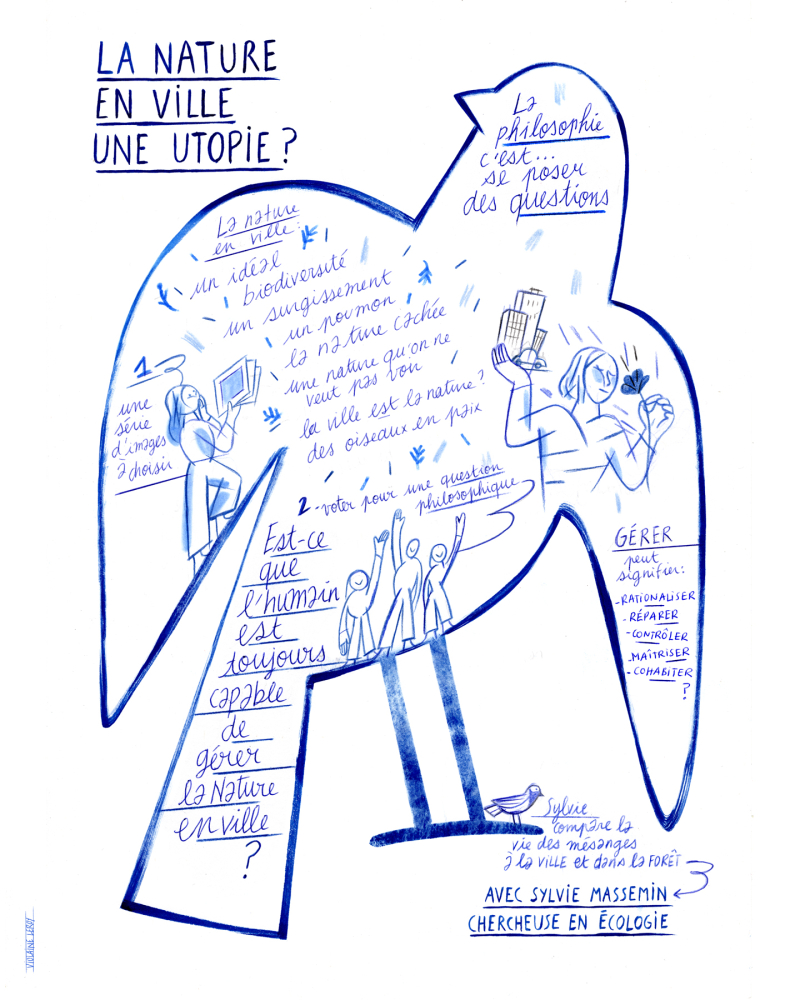 LA NATURE
EN ViLLE
UNE UTOPiE ?
La
philosophie
c'est...
se poser
des questions
La nature
en ville :
un idéal
biodiversité
un surgissement
un poumon
la nature cachée
une nature qu'on ne
veut pas voir
la ville est la nature ?
des oiseaux en paix
1
une
série
d'images
à choisir
2 - voter pour une question
philosophique
Est-ce
que
l'humain
est
toujours
capable
de
gérer
la Nature
en ville
?
GÉRER
peut
signifier :
- RATIONALISER
- RÉPARER
- CONTRÔLER
- MAÎTRISER
- COHABITER
?
Sylvie
compare la
vie des mésanges
à la ViLLE et dans la FORÊT
AVEC SYLVIE MASSEMIN
CHERCHEUSE EN ÉCOLOGIE
VIOLAINE LEROY